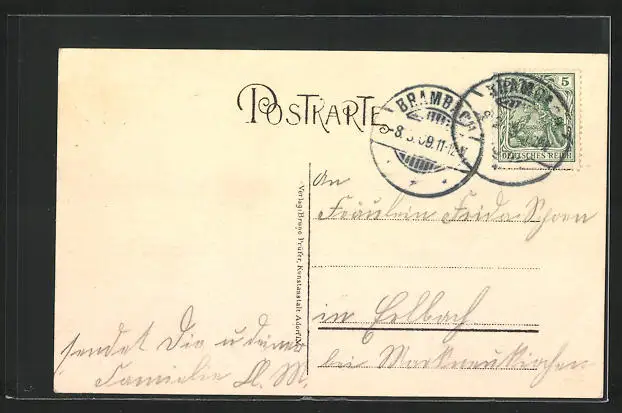 POSTKARTE
BRAMBACH
-8.5.09.11-12V.
BRAMBACH
5
DEUTSCHES REICH
Verlag: Bruno Prüfer, Kunstanstalt Adorf i.V.
An
Fräulein Frida Schoen
in Erlbach
bei Markneukirchen
sendet Dir u deiner
Familie A. M.